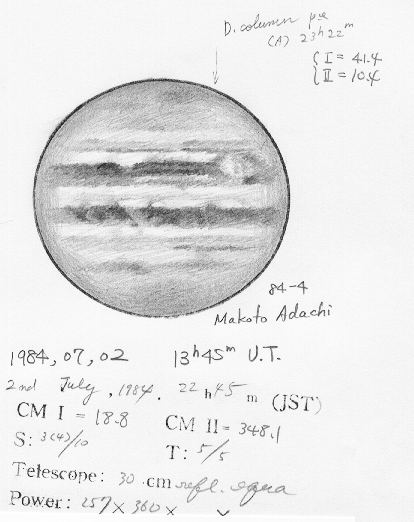 D. column pre
(A) 23h22m
I = 41.4
II = 10.4
84-4
Makoto Adachi
1984, 07, 02 13h45m U.T.
2nd July, 1984. 22h45m (JST)
CM I = 18.8 CM II = 348.1
S: 3(4)/10 T: 5/5
Telescope: 30 cm refl. equa
Power: 257× 360×